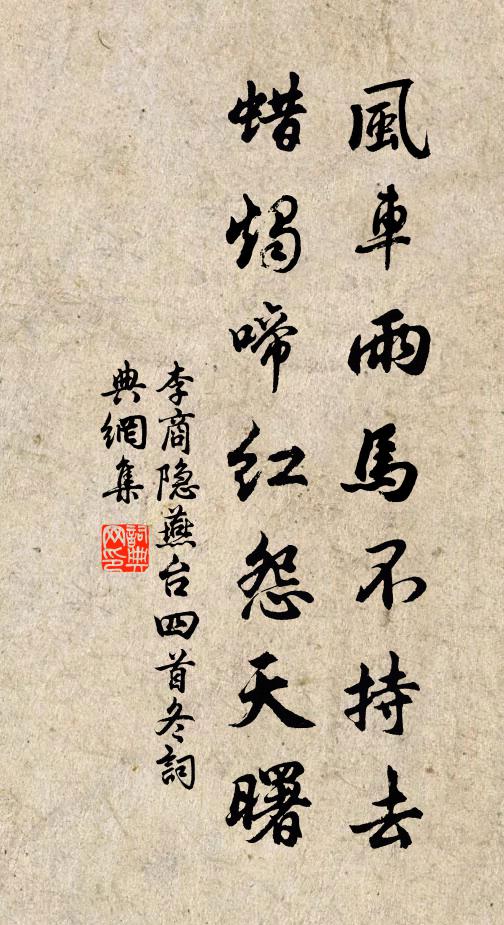 風車雨馬不持去
蜡燭啼红怨天曙
李商隐燕台四首冬詞
典網集
詞典
网印